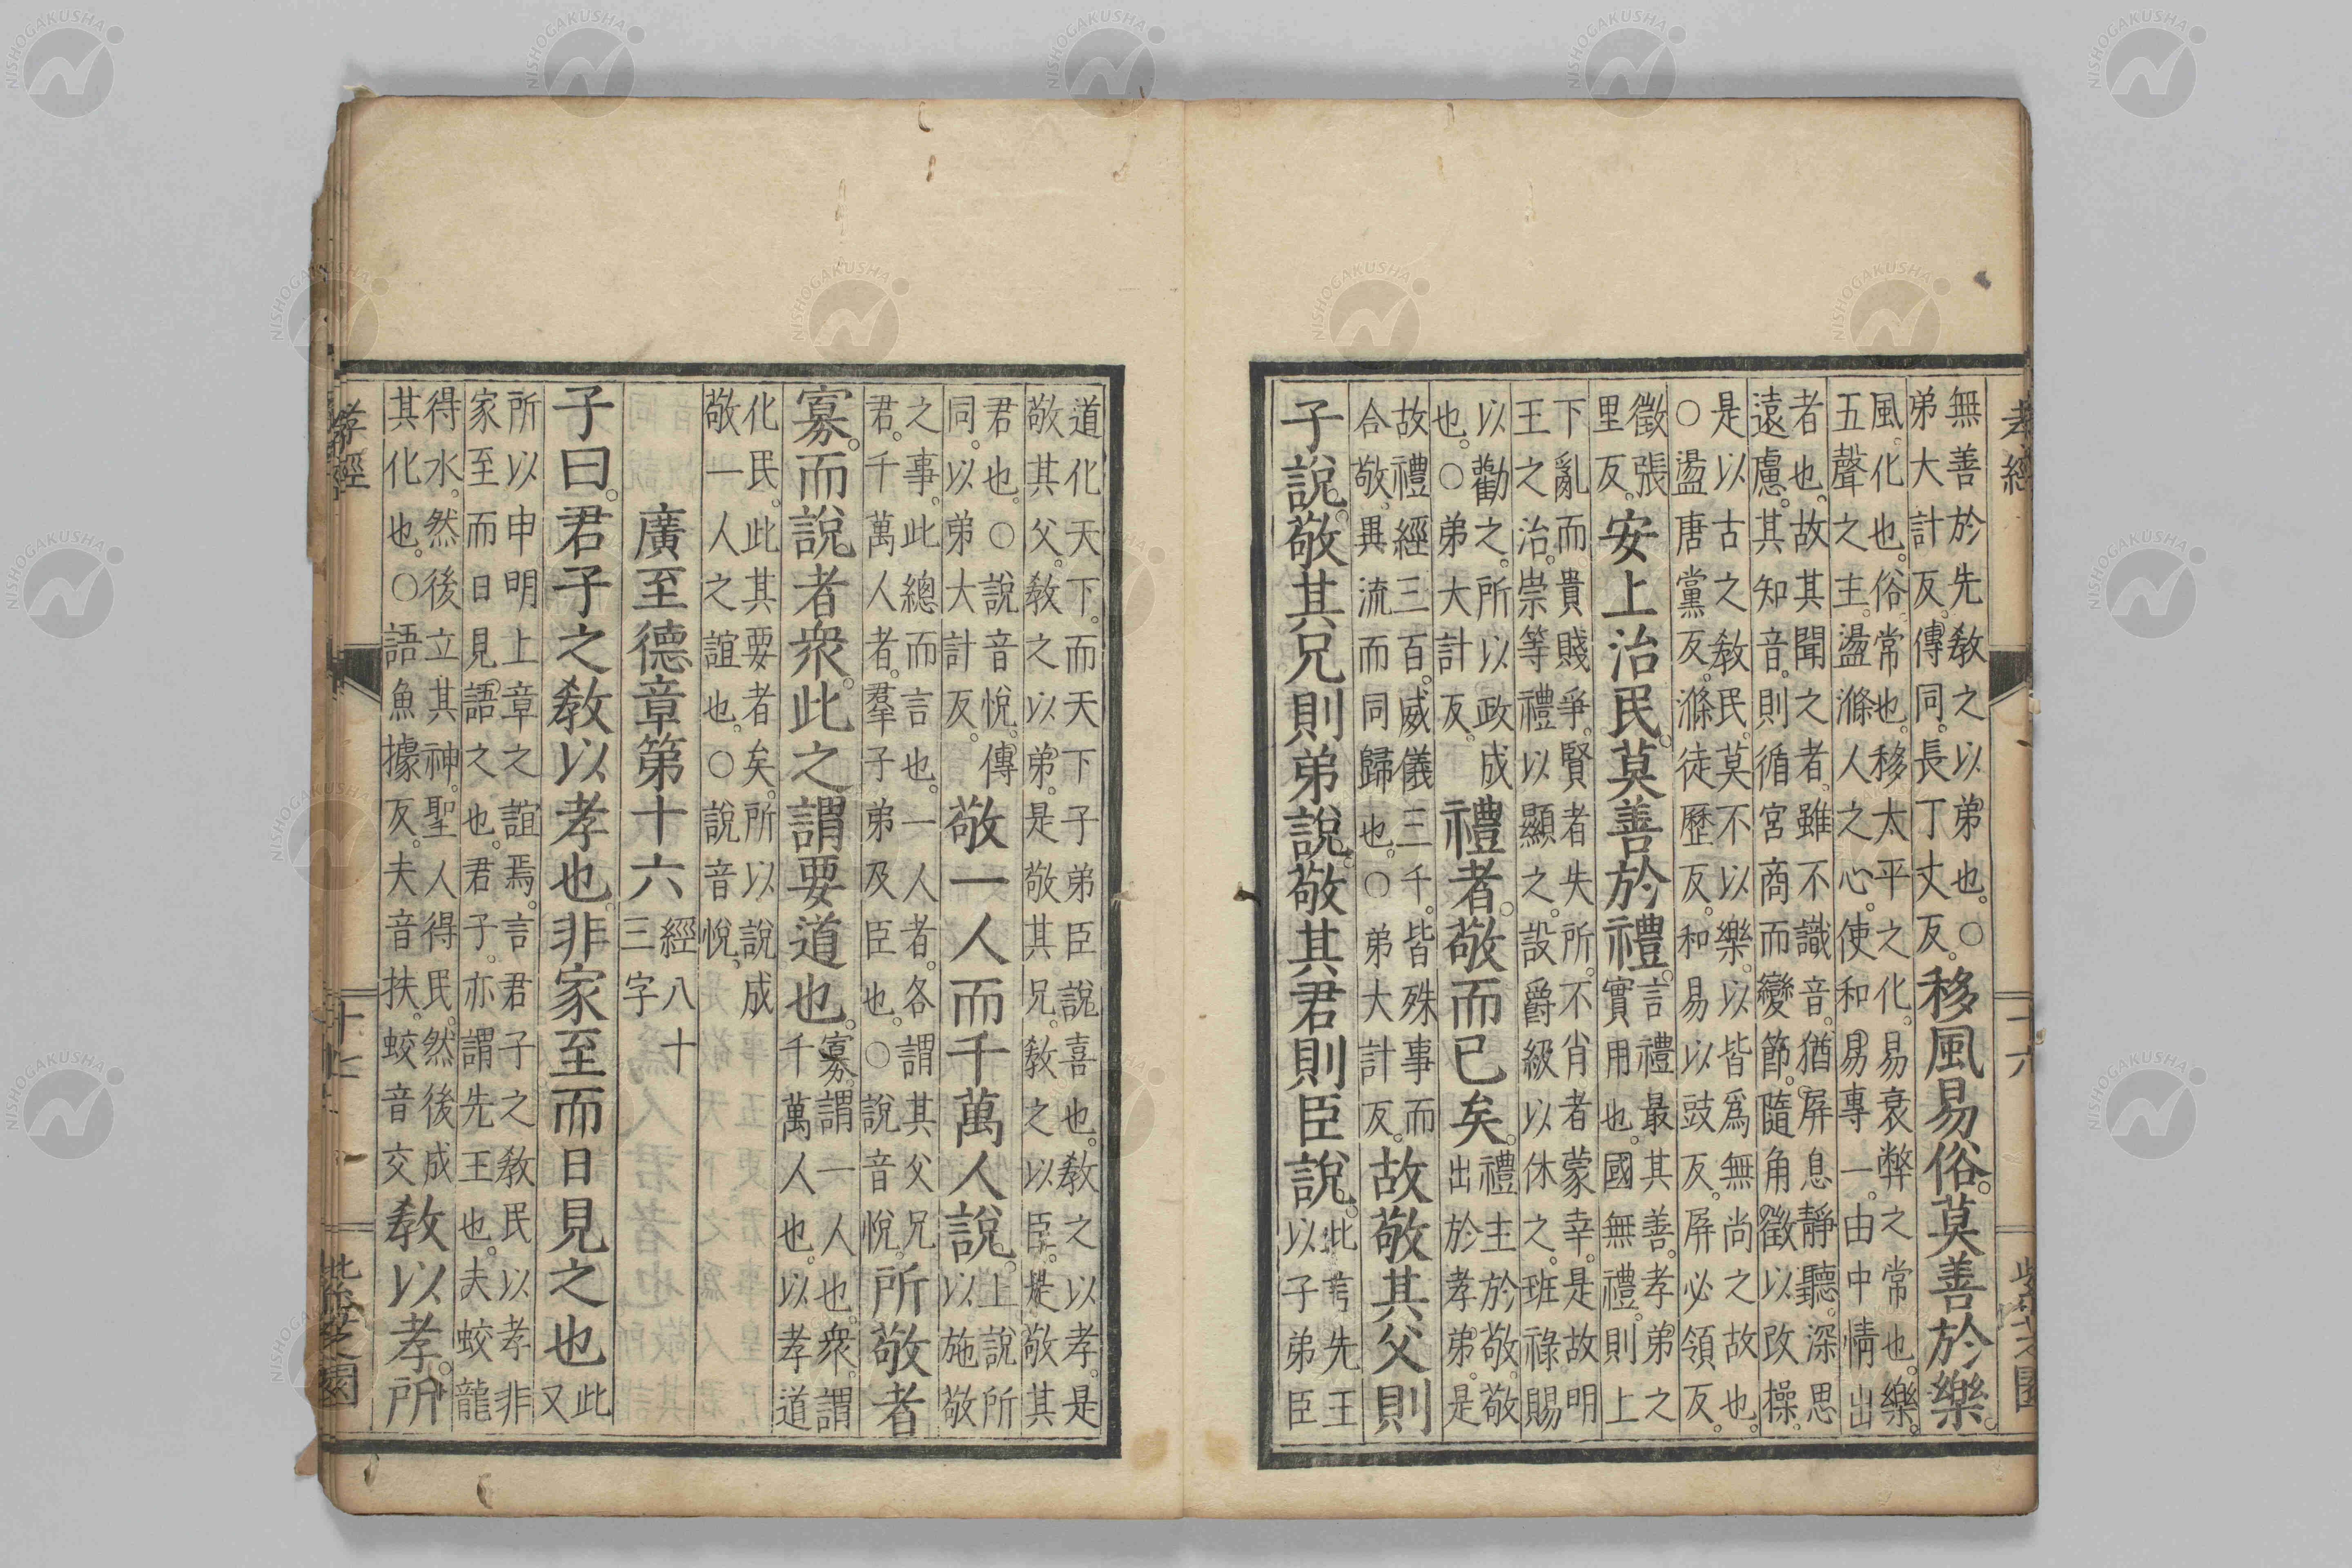 孝經 十六 紫芝園
無善於先敎之以弟也。○
弟大計反。傳同。長丁丈反。
移風易俗。莫善於樂。
風。化也。俗。常也。移太平之化。易衰弊之常也。樂。
五聲之主。盪滌人之心。使和易專一。由中情出
者也。故其聞之者。雖不識音。猶屏息靜聽。深思
遠慮。其知音。則循宮商而變節。隨角徵以改操。
是以古之敎民。莫不以樂。以皆爲無尚之故也。
○盪唐黨反。滌徒歷反。和易以豉反。屏必領反。
徵張
里反。
安上治民。莫善於禮。
言禮最其善。孝弟之
實用也。國無禮。則上
下亂而貴賤爭。賢者失所。不肖者蒙幸。是故明
王之治。崇等禮以顯之。設爵級以休之。班祿賜
以勸之。所以政成
也。○弟大計反。
禮者。敬而已矣。
禮主於敬。敬
出於孝弟。是
故禮經三百。威儀三千。皆殊事而
合敬。異流而同歸也。○弟大計反。
故敬其父則
子說。敬其兄則弟說。敬其君則臣說。
此 先王
以子弟臣
道化天下。而天下子弟臣說喜也。敎之以孝。是
敬其父。敎之以弟。是敬其兄。敎之以臣。是敬其
君也。○說音悅。傳
同。以弟大計反。
敬一人而千萬人說。
上說所
以施敬
之事。此總而言也。一人者。各謂其父兄
君。千萬人者。羣子弟及臣也。○說音悅。
所敬者
寡。而說者衆。此之謂要道也。
寡。謂一人也。衆。謂
千萬人也。以孝道
化民。此其要者矣。所以說成
敬一人之誼也。○說音悅。
廣至德章第十六
經八十
三字
子曰。君子之敎以孝也。非家至而日見之也
此
又
所以申明上章之誼焉。言君子之敎民以孝。非
家至而日見語之也。君子。亦謂先王也。夫蛟龍
得水。然後立其神。聖人得民。然後成
其化也。○語魚據反。夫音扶。蛟音交
敎以孝。所
孝經 十七 紫芝園
NISHOGAKUSHA